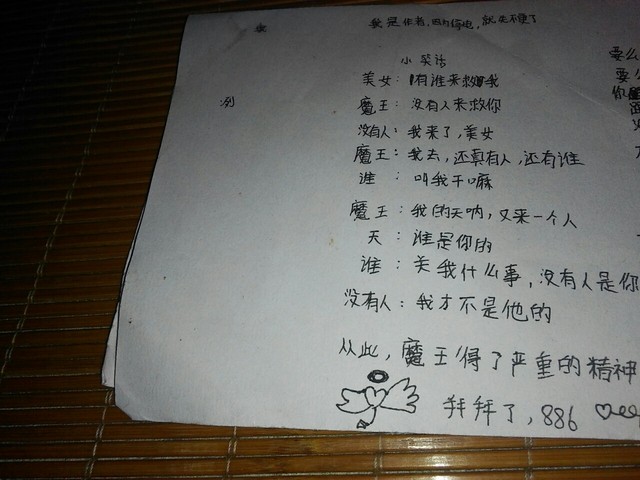 我是作者，因为停电，就先不更了
小笑话
要么
美女：有谁来救我
要
魔王：没有人来救你
你
没有人：我来了，美女
魔王：我去，还真有人，还有谁
谁：叫我干嘛
魔王：我的天呐，又来一个人
天：谁是你的
谁：关我什么事，没有人是你
没有人：我才不是他的
从此，魔王得了严重的精神
拜拜了，886